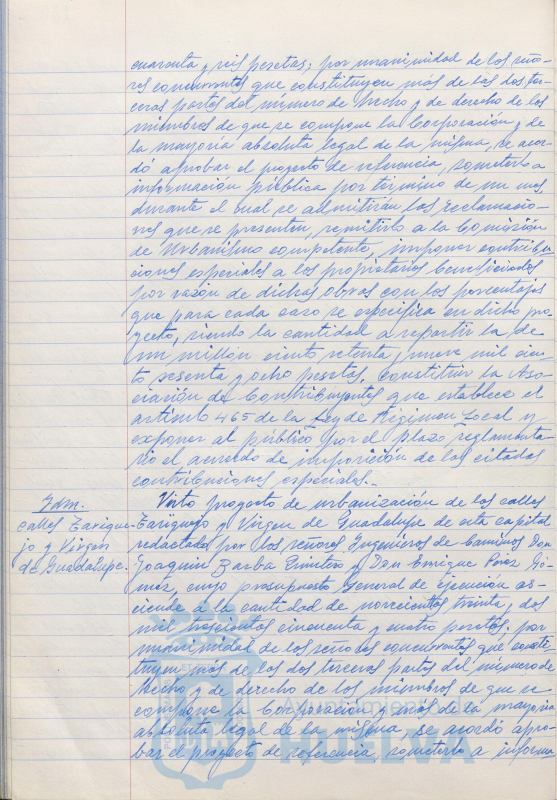 cuarenta y seis pesetas; por unanimidad de los seño-
res concurrentes que constituyen más de las dos ter-
ceras partes del número de hecho y de derecho de los
miembros de que se compone la Corporación y de
la mayoría absoluta legal de la misma, se acor-
dó aprobar el proyecto de referencia, someterlo a
información pública por término de un mes
durante el cual se admitirán las reclamacio-
nes que se presenten, remitirlo a la Comisión
de Urbanismo competente, imponer contribu-
ciones especiales a los propietarios beneficiados
por razón de dichas obras con los porcentajes
que para cada caso se especifica en dicho pro-
yecto, siendo la cantidad a repartir la de
un millón ciento setenta y nueve mil cien-
to sesenta y ocho pesetas, constituir la Aso-
ciación de Contribuyentes que establece el
artículo 465 de la Ley de Régimen Local y
exponer al público por el plazo reglamenta-
rio el acuerdo de imposición de las citadas
contribuciones especiales.-
Idm.
calles Tarique-
jo y Virgen
de Guadalupe.
Visto proyecto de urbanización de las calles
Tariquejo y Virgen de Guadalupe de esta capital
redactado por los señores Ingenieros de Caminos Don
Joaquín Barba Quintero y Don Enrique Pérez Gó-
mez, cuyo presupuesto General de Ejecución as-
ciende a la cantidad de novecientas treinta y dos
mil seiscientas cincuenta y cuatro pesetas, por
unanimidad de los señores concurrentes que consti-
tuyen más de las dos terceras partes del número de
hecho y de derecho de los miembros de que se
compone la Corporación y más de la mayoría
absoluta legal de la misma, se acordó apro-
bar el proyecto de referencia, someterlo a informa
HUELVA